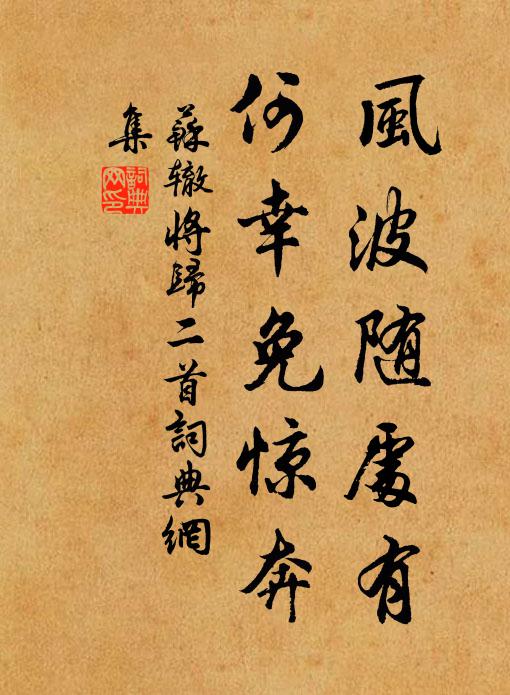 風波随處有
何幸免惊奔
蘇辙将歸二首詞典網
集
詞典网印